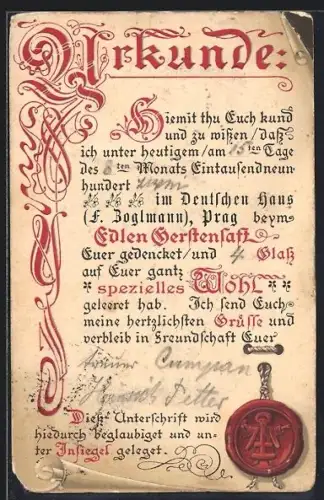 Urkunde:
Hiemit thu Euch kund
und zu wißen / daß
ich unter heutigem / am 15ten Tage
des 8ten Monats Eintausendneun-
hundert
im Deutschen Haus
(F. Zoglmann), Prag beym
Edlen Gerstensaft
Euer gedencket und 4 Glaß
auf Euer gantz
spezielles Wohl
geleeret hab. Ich send Euch
meine hertzlichsten Grüsse und
verbleib in Freundschaft Euer
Cumpan
Heinrich
Dieße Unterschrift wird
hiedurch beglaubiget und un-
ter Insiegel geleget.